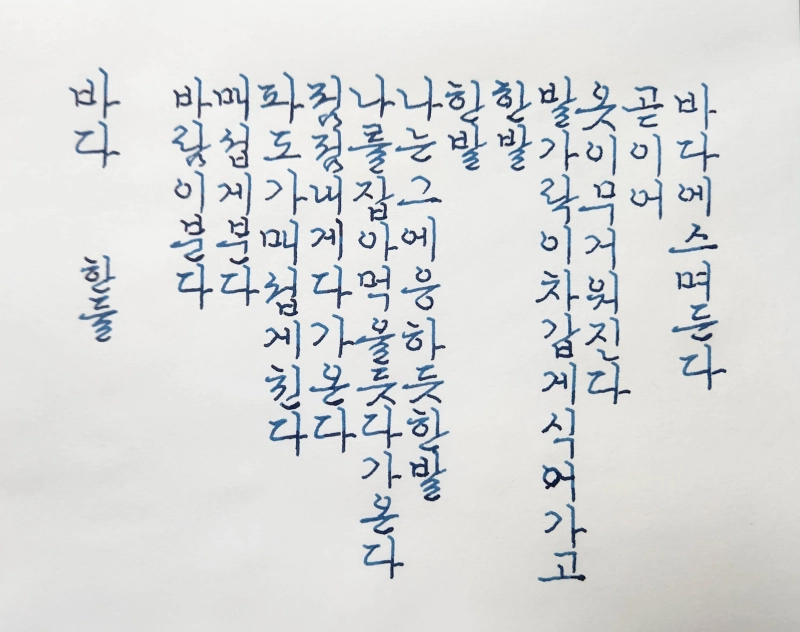 바다 한들
바람이분다
매섭게분다
파도가매섭게친다
점점내게다가온다
나를잡아먹을듯다가온다
나는그에응하듯한발
한발
한발
발가락이차갑게식어가고
옷이무거워진다
곧이어
바다에스며든다